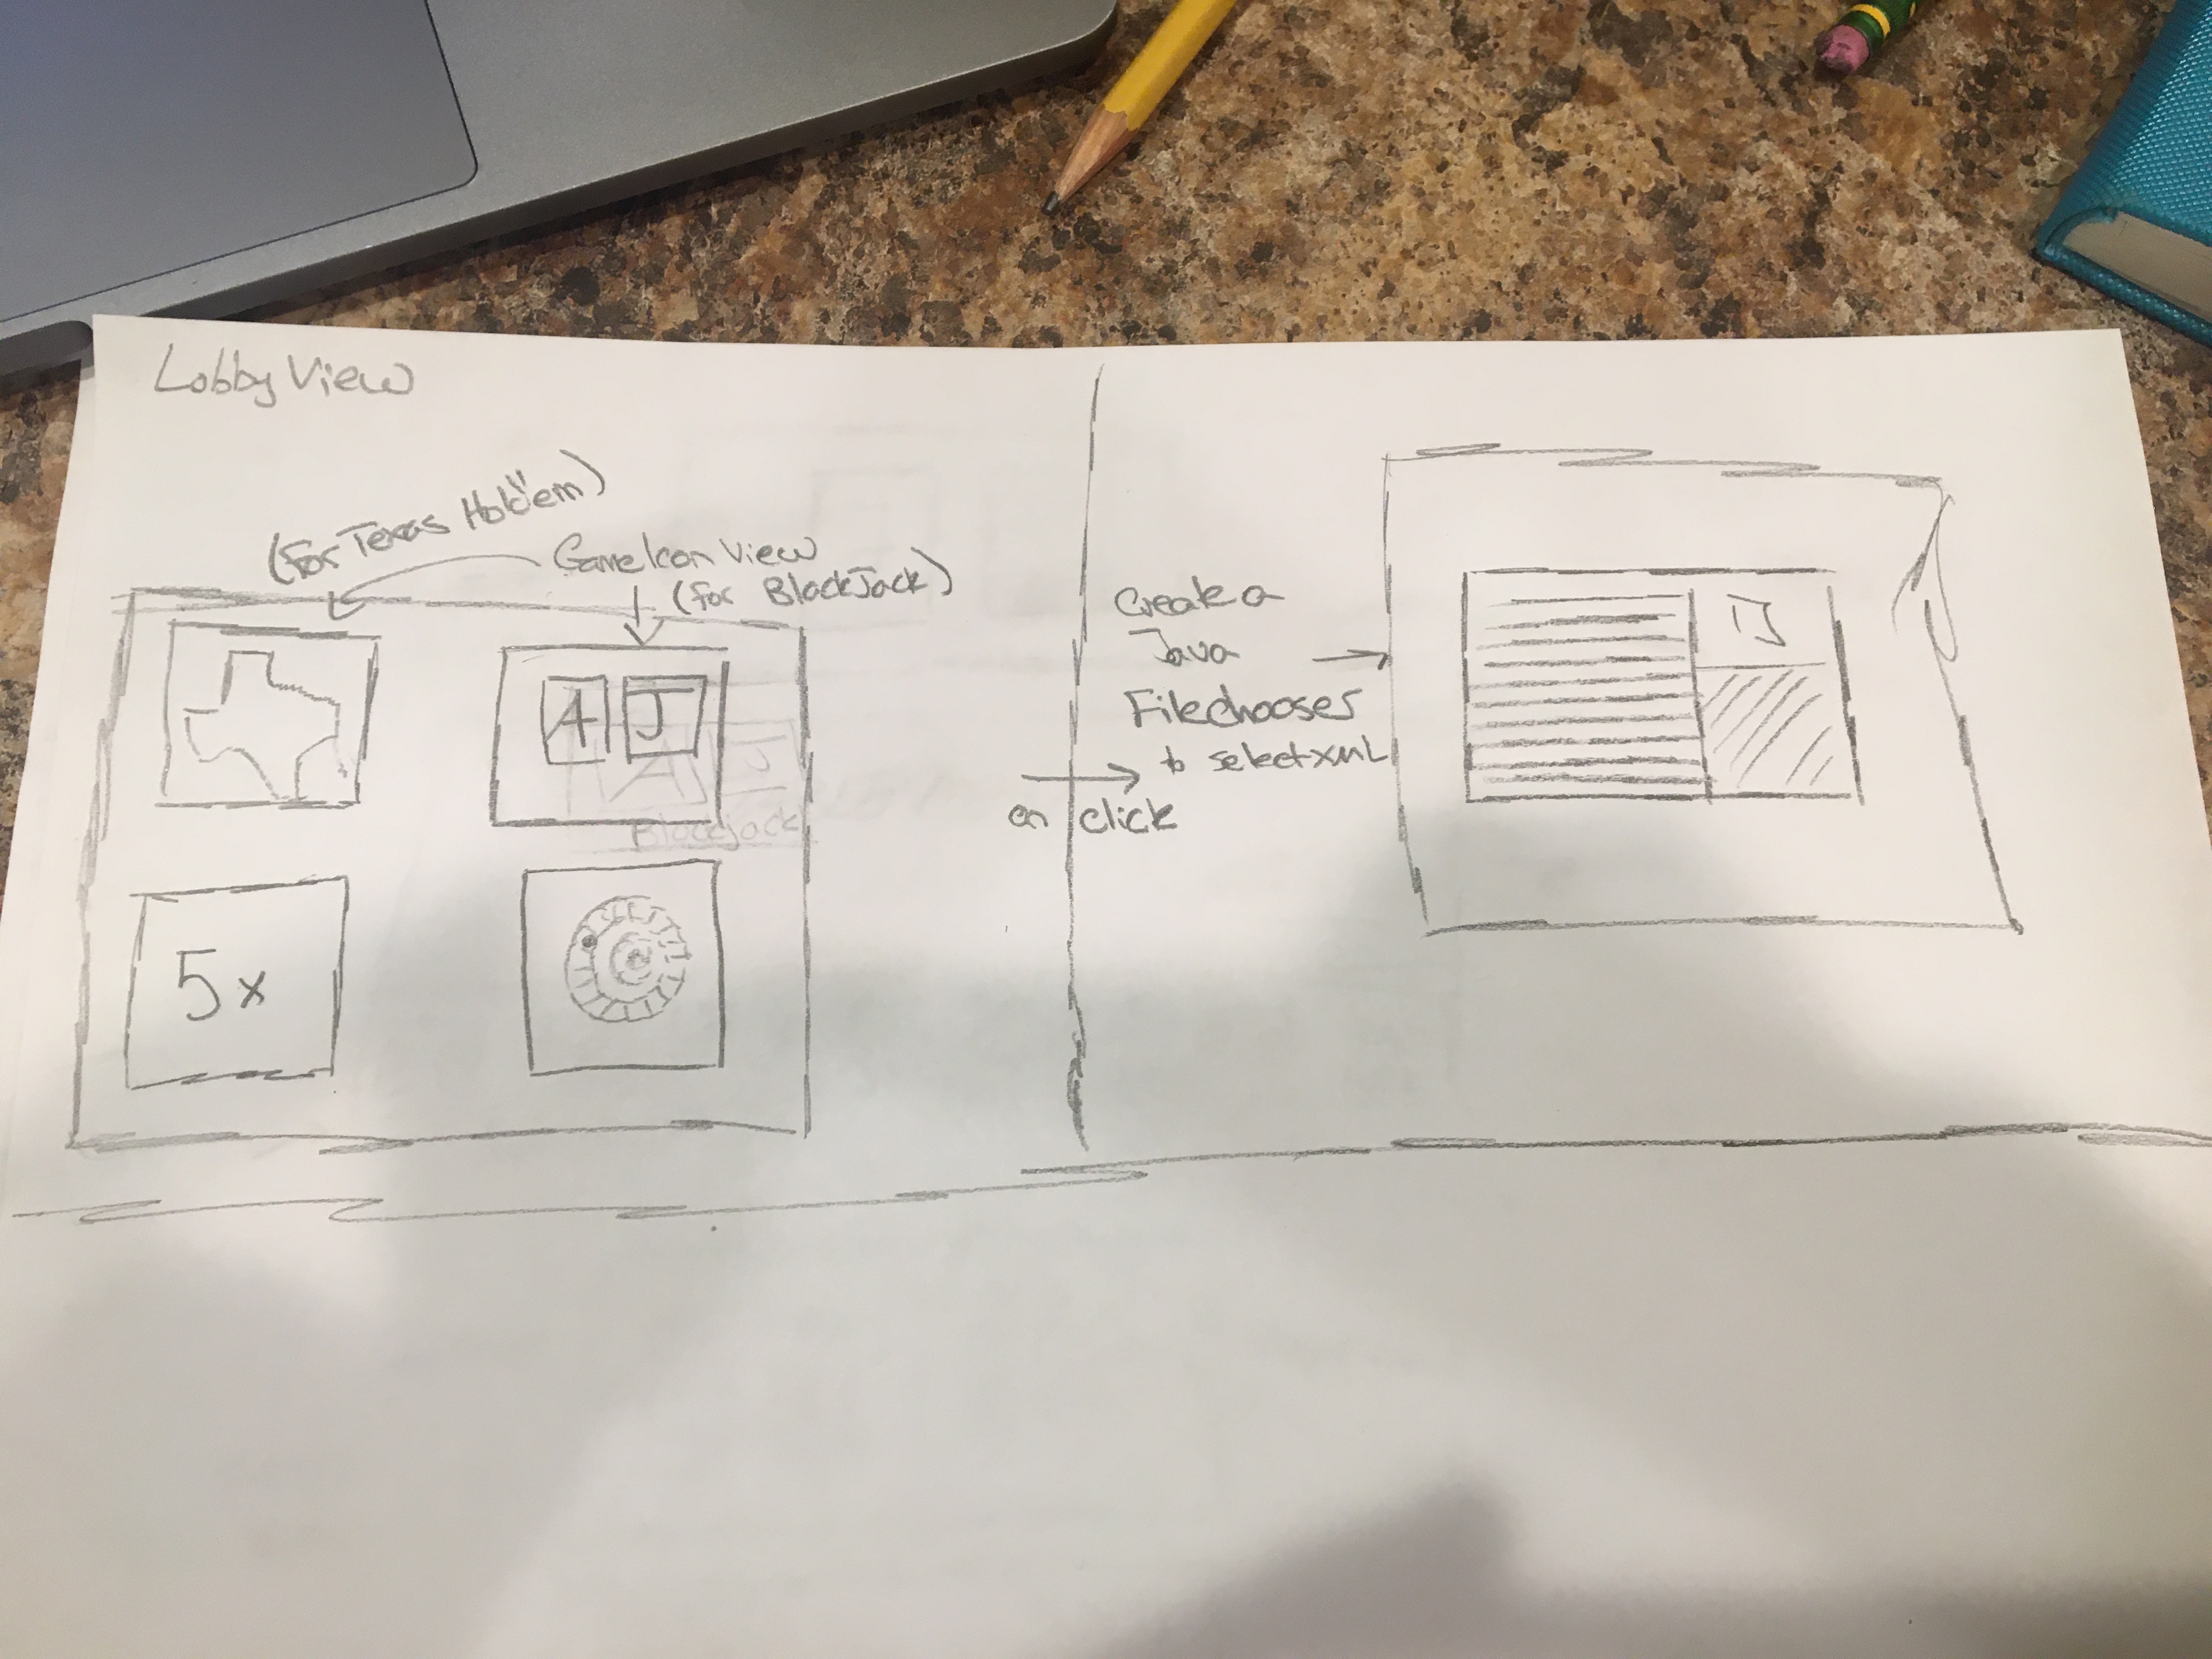 Lobby View
(for Texas Hold'em)
GameIcon View
(for BlackJack)
A J
Blackjack
5x
on click
Create a
Java
Filechooser
to select xml